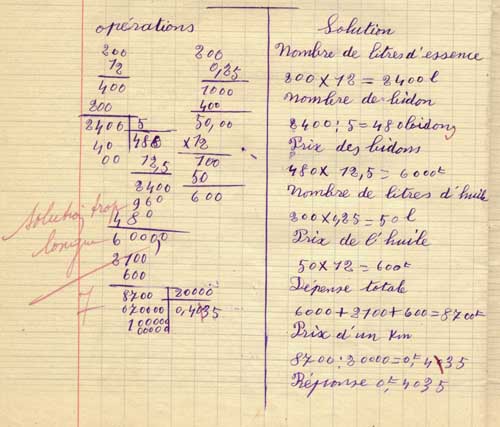 opérations
200 200
12 0,25
400 1000
200 400
2400 5 50,00
40 480 ×12
00 12,5 100
2400 50
960 600
480
60000
2100
600
8700 20000
070000 0,4035
100000
00000
Solution trop
longue
7
Solution
Nombre de litres d'essence
200 × 12 = 2400 l
Nombre de bidon
2400 : 5 = 480 bidons
Prix des bidons
480 × 12,5 = 6000f
Nombre de litres d'huile
200 × 425 = 50 l
Prix de l'huile
50 × 12 = 600f
Dépense totale
6000 + 2100 + 600 = 8700f
Prix d'un Km
8700 : 20000 = 0f,4035
Réponse 0f,4035